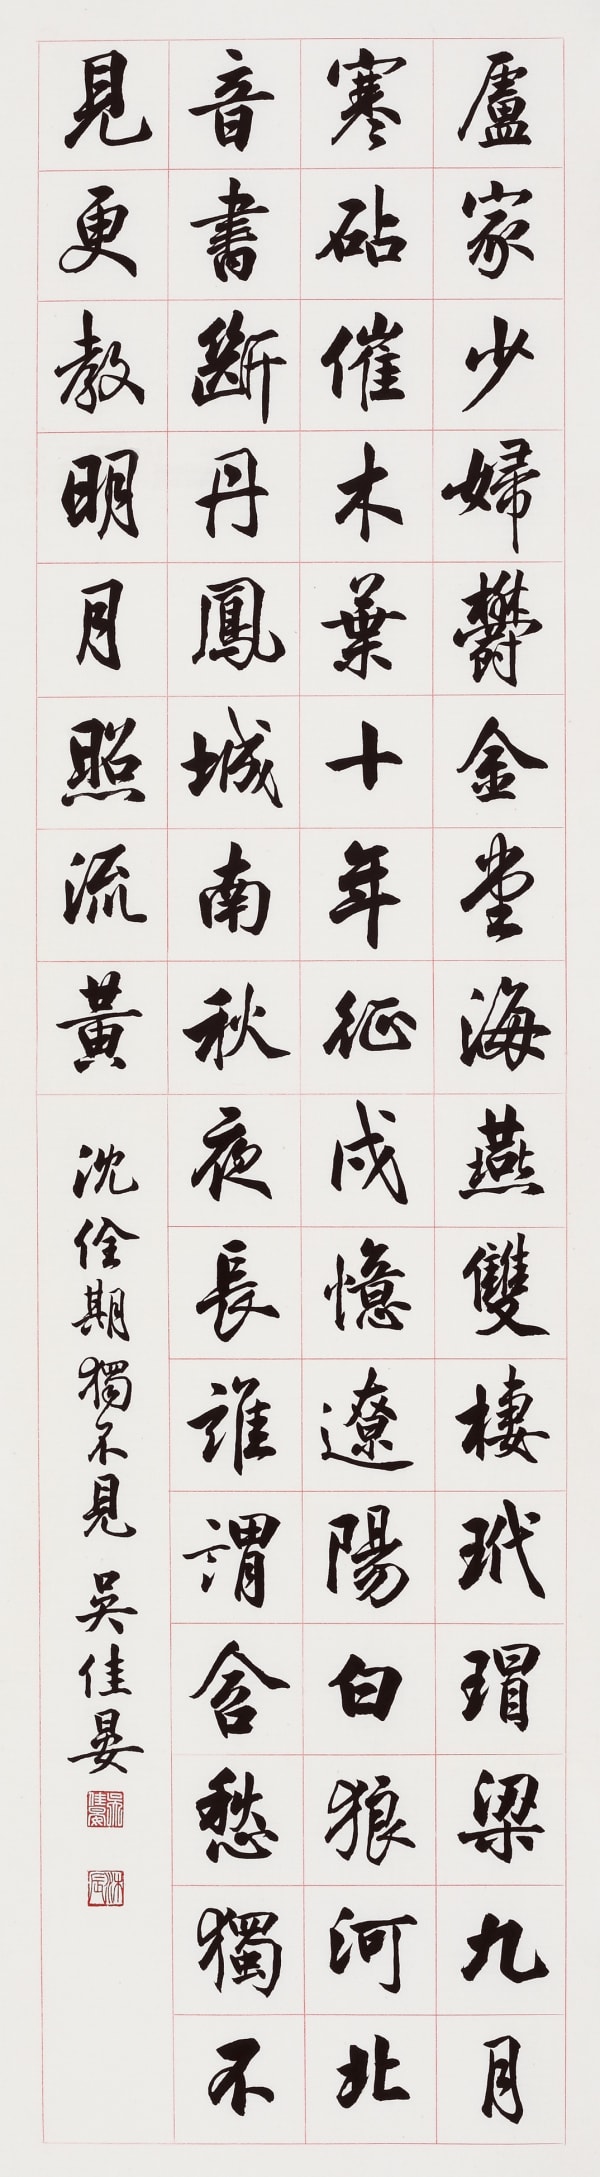 盧家少婦鬱金堂海燕雙棲玳瑁梁九月
寒砧催木葉十年征戍憶遼陽白狼河北
音書斷丹鳳城南秋夜長誰謂含愁獨不
見更教明月照流黃
沈佺期獨不見 吳佳晏